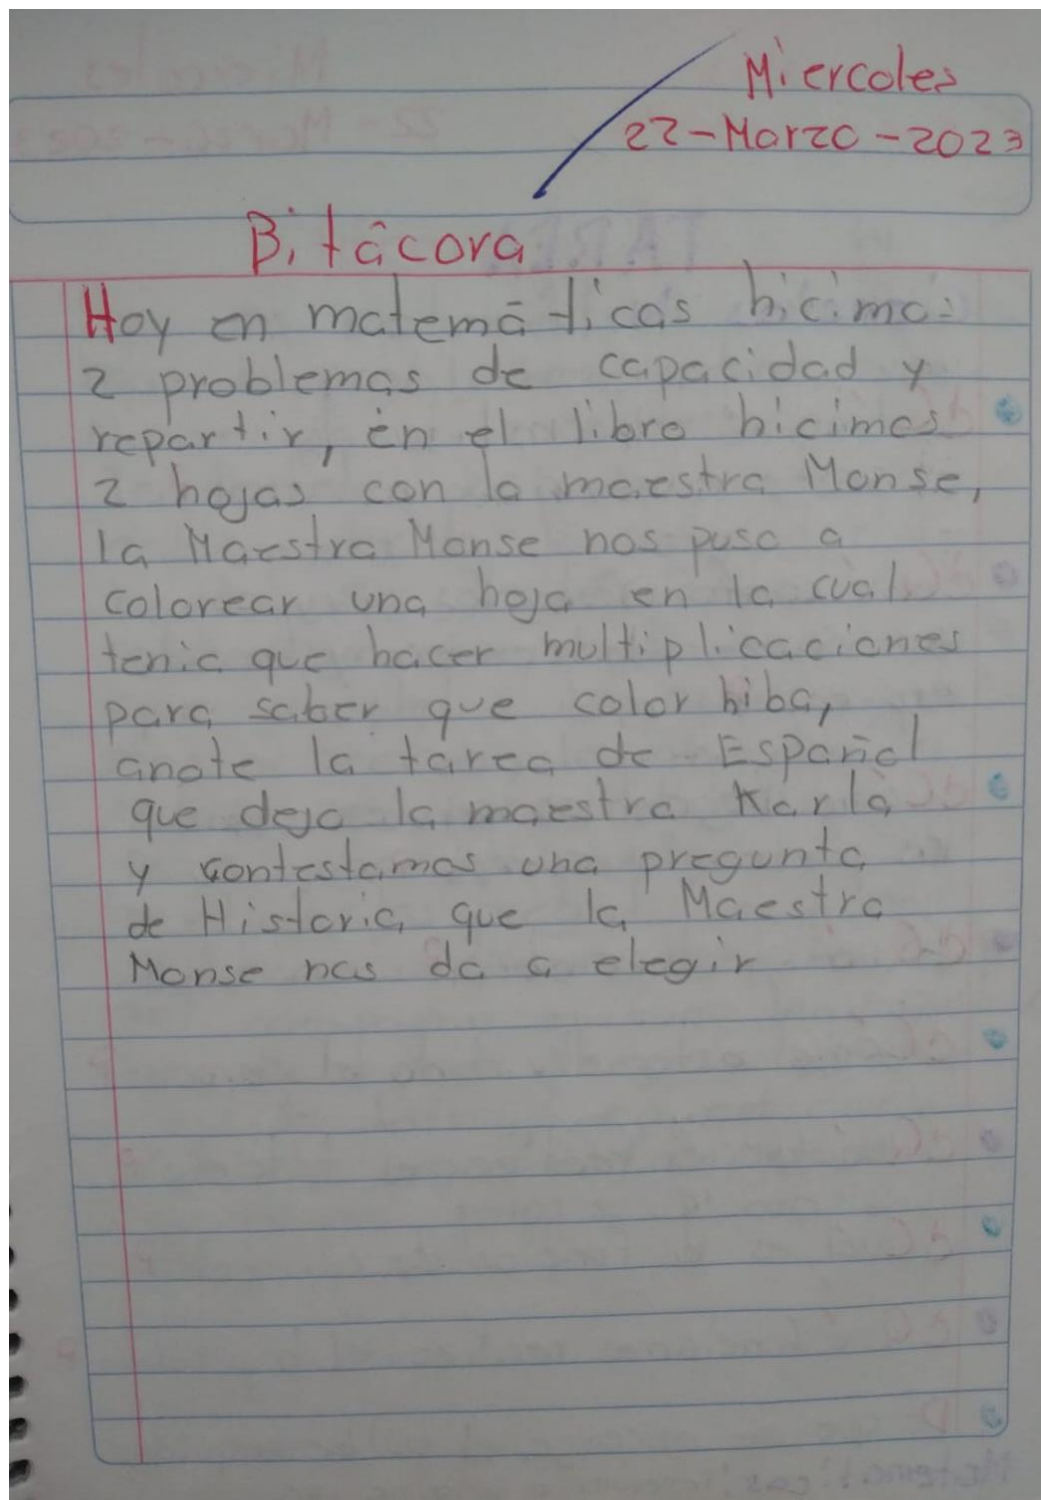 Miercoles
22-Marzo-2023
Bitácora
Hoy en matemáticas hicimos
2 problemas de capacidad y
repartir, en el libro hicimos
2 hojas con la maestra Monse,
la Maestra Monse nos puso a
colorear una hoja en la cual
tenia que hacer multiplicaciones
para saber que color hiba,
anote la tarea de Español
que dejo la maestra Karla
y contestamos una pregunta
de Historia que la Maestra
Monse nos da a elegir